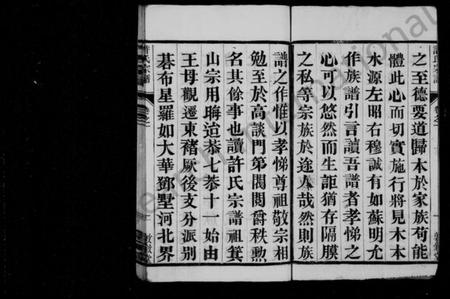 之至德愛道歸本於家族苟能
體此心而切實施行將見木本
水源左昭右穆誠有如蘇明允
作族譜引言讀吾譜者孝悌之
心可以悠然而生詎猶存隔膜
之私等宗族於途人哉然則族
許氏宗譜
譜之作惟以孝悌尊祖敬宗相
勉至於高談門第閥閱爵秩勲
名其餘事也讀許氏宗譜祖箕
山宗用晦迨恭七恭十一始由
王母觀遷東豬厥後支分派別
碁布星羅如大華鄧墅河北界